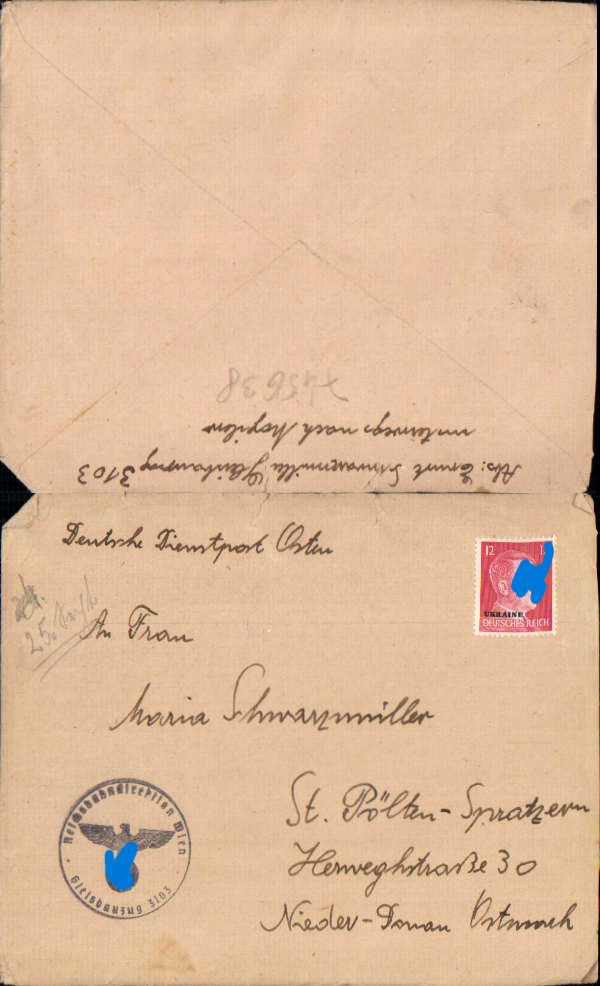 7455638
unterwegs nach
Abs: Schwarzmüller Gleisbauzug 3103
Deutsche Dienstpost Osten
12
UKRAINE
DEUTSCHES REICH
25.
An Frau
Maria Schwarzmüller
St. Pölten-Spratzern
Herweghstraße 30
Nieder-Donau Ostmark
Reichsbahndirektion Wien
Gleisbauzug 3103